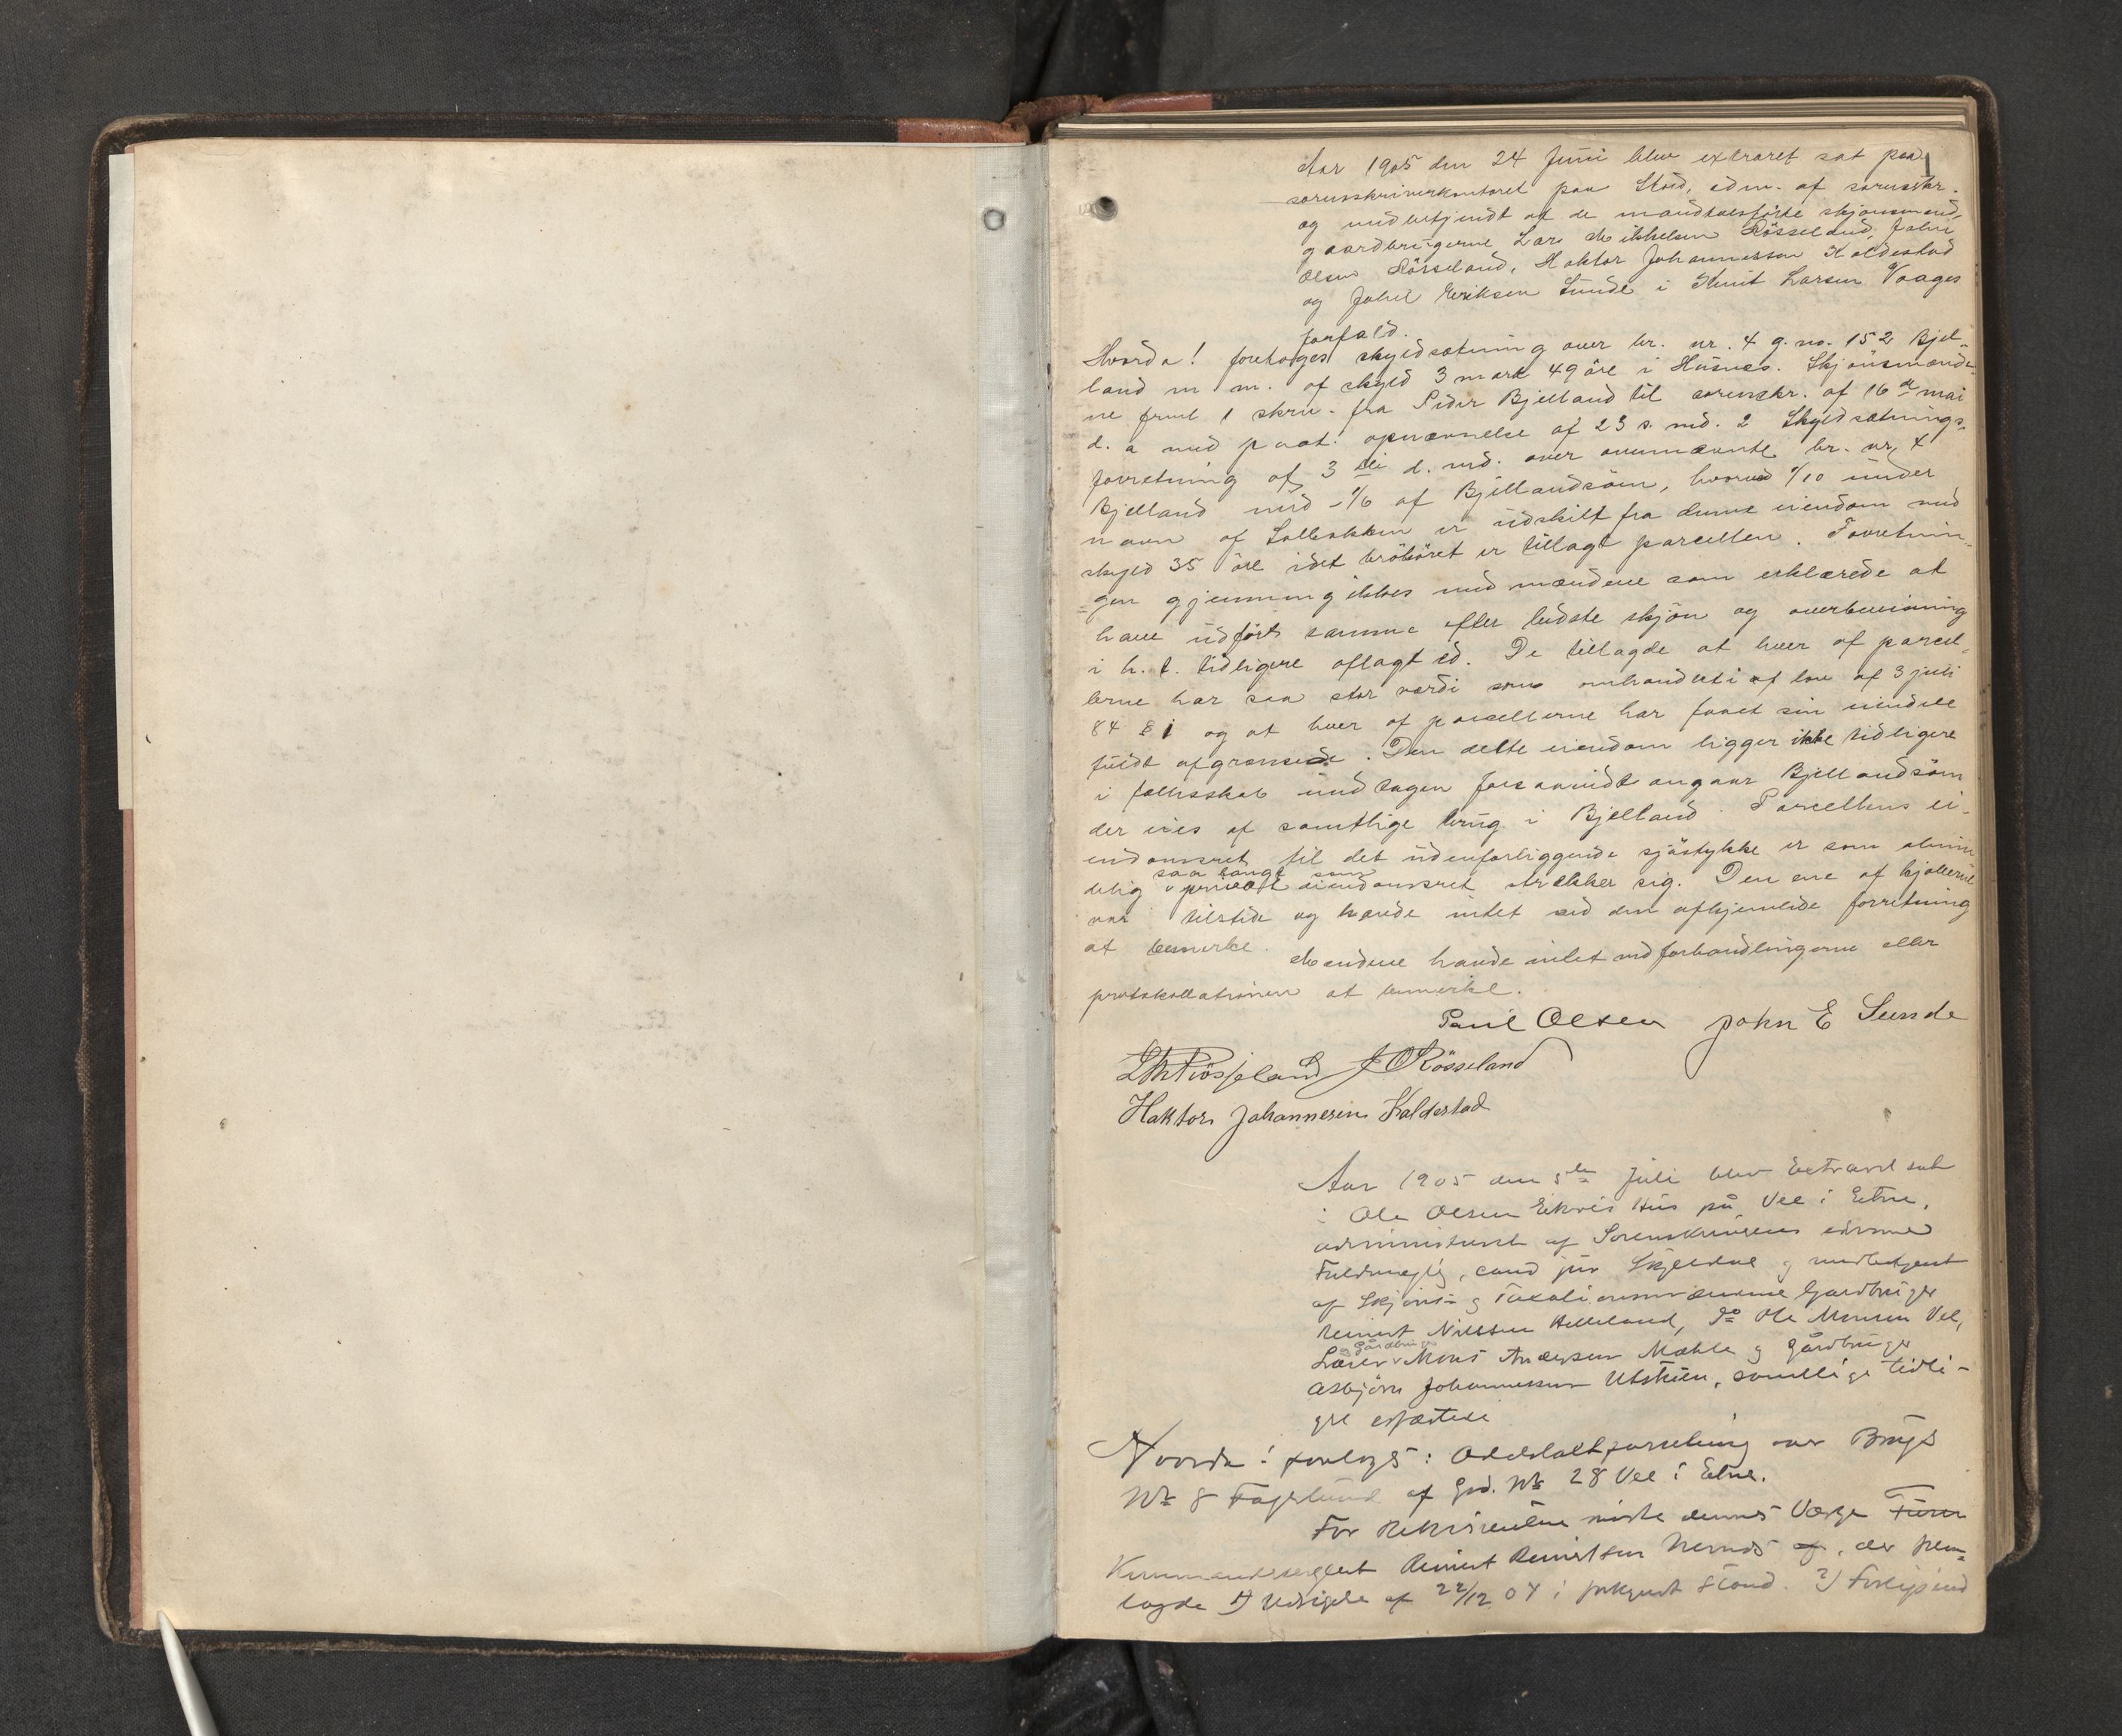 1
Aar 1905 den 24 Juni blev extraret sat paa
sorenskriverkontoret paa Stord, adm. af sorenskr.
og medbetjendt af de mandtalsførte skjønsmænd,
gaardbrugerne Lars Mikkelsen Røsseland, John
Olsen Røsseland, Haktor Johannessen Kaldestad
og John Eriksen Sunde i Knut Larsen Vaages
forfald.
Hvorda! foretoges skyldsætning over br. nr. 4 g. no. 152 Bjel-
land m m. af skyld 3 mark 49 øre i Husnes. Skjønsmænde-
ne freml 1 skrv. fra Peder Bjelland til sorenskr. af 16 de mai
d. a med paat. opnævnelse af 23 s. md. 2 Skyldsætnings-
forretning af 3 die d. md. over ovennævnte br. nr. 4
Bjelland med 1/6 af Bjellandsøen, hvorved 1/10 under
navn af Solbakken er udskilt fra denne eiendom med
skyld 35 øre idet brøkøret er tillagt parcellen. Forretnin-
gen gjennemgikkes med mændene som erklærede at
have udført samme efter bedste skjøn og overbevisning
i h. t. tidligere aflagt ed. De tillagde at hver af parcel-
lerne har saa stor værdi som omhandlet i lov af 3 juli
84 § 1 og at hver af parcellerne har faaet sin eiendele
fuldt afgrænsede. Den delte eiendom ligger ikke tidligere
i fællesskab undtagen forsaavidt angaar Bjellandsøen
der eies af samtlige brug i Bjelland. Parcellens ei-
endomsret til det udenforliggende sjøstykke er som almin
delig saa langt som privat eiendomsret strækker sig. Den ene af kjøberne
var tilstede og havde intet ved den afhjemlede forretning
at bemerke. Mændene havde intet ved forhandlingerne eller
protokollationen at bemerke.
Paul Olsen John E Sunde
L M Røsseland J O Røsseland
Haktor Johannesen Kaldestad
Aar 1905 den 5te Juli blev Extraret sat
i Ole Olsen Eiknes Hus på Vee i Etne,
administreret af Sorenskriverens edsvorne
Fuldmægtig, cand jur Skjeldal og medbetjent
af Skjøns- og Taxationsmændene Gaardbruger
Reinert Nilssen Helleland, Do Ole Monsen Vee,
Lærer og Gårdbruger Mons Andersen Mæhle og Gårdbruger
Asbjørn Johannessen Utstuen, samtlige tidli-
gre edfæstede
Hvorda! foretoges: Odelstaktforretning over Brugs
No 8 Fagerlund af Grd. No 28 Vee i Etne.
For Rekvirenten mødte dennes Værge
Kommandersergent Reinert Reinertsen, der frem-
lagde 1) Udsigelse af 22/12 04 i forkyndt Stand. 2) Forligsind